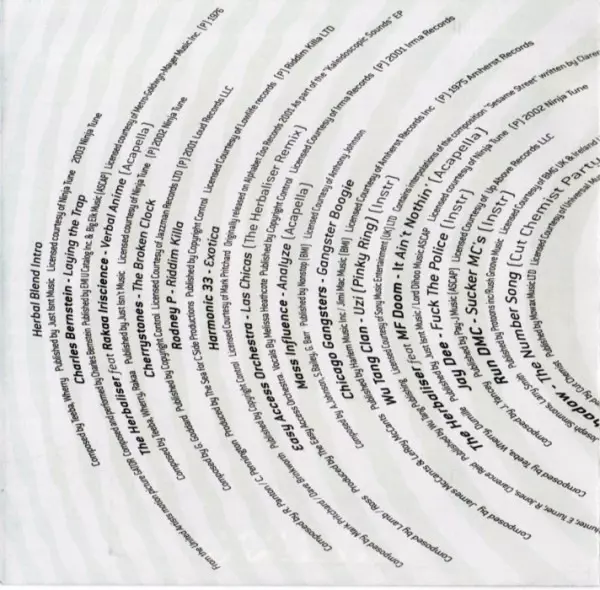 Herbal Blend Intro
Composed by Teeba, Wherry Published by Just Isn't Music Licensed courtesy of Ninja Tune 2003 Ninja Tune
Charles Bernstein - Laying the Trap
Composed and performed by Charles Bernstein Published by EMI U Catalog Inc. & Big Elk Music (ASCAP) Licensed Courtesy of
From the United Artists motion picture [P] 1976
The Herbaliser feat Rakaa Iriscience - Verbal Anime (Acapella)
Composed by Teeba, Wherry, Rakaa Published by Just Isn't Music Licensed courtesy of Ninja Tune [P] 2002 Ninja Tune
Cherrystones - The Broken Clock
Composed by G. Goddard Published by Copyright Control Licensed Courtesy of Jazzman Records LTD [P] 2001 Loud Records LLC
Rodney P - Riddim Killa
Composed by R. Panton / C. Pennington Produced by The Sea for C'Side Productions Published by Copyright Control Licensed Courtesy of Lowlife records [P] Riddim Killa LTD
Harmonic 33 - Exotica
Composed by Mark Pritchard / Dave Brinkworth Published by Copyright Control Licensed Courtesy of Mark Pritchard Originally released on Alphabet Zoo Records 2001 As part of the "Kaleidoscopic Sounds" EP
Easy Access Orchestra - Las Chicas (The Herbaliser Remix)
Composed by Lamb / Ross Produced by The Easy Access Orchestra Vocals By Melissa Heathcote Published by Copyright Control Licensed Courtesy of Irma Records [P] 2001 Irma Records
Mass Influence - Analyze (Acapella)
Composed by A. Johnson, S. Bailey, G. Barr Published by Nonstop (BMI) Licensed Courtesy of Anthony Johnson
Chicago Gangsters - Gangster Boogie
Composed by James McCants & Leroy McCants Published by Halwill Music Inc / Simi Mac Music (BMI) Licensed Courtesy of Amherst Records Inc [P] 1975 Amherst Records
Wu Tang Clan - Uzi (Pinky Ring) (Instr)
Published by Wu Tang Publishing Licensed Courtesy of Sony Music Entertainment (UK) LTD Contains interpolations of the composition "Sesame Street" written by
The Herbaliser feat MF Doom - It Ain't Nothin' (Acapella)
Composed by Teeba, Wherry, Dumille Published by Just Isn't Music / Lord Dihoo Music ASCAP Licensed courtesy of Ninja Tune [P] 2002 Ninja Tune
Jay Dee - Fuck The Police (Instr)
Composed by J. Yancey Published by Pay J Music (ASCAP) Licensed Courtesy of Up Above Records LLC
Run DMC - Sucker MC's (Instr)
Joseph Simmons, Larry Smith Published by Protoons Inc/Rush Groove Music Licensed Courtesy of BMG UK & Ireland
Shadow - The Number Song (Cut Chemist Party
Published by Mowax Music LTD Licensed Courtesy of Universal